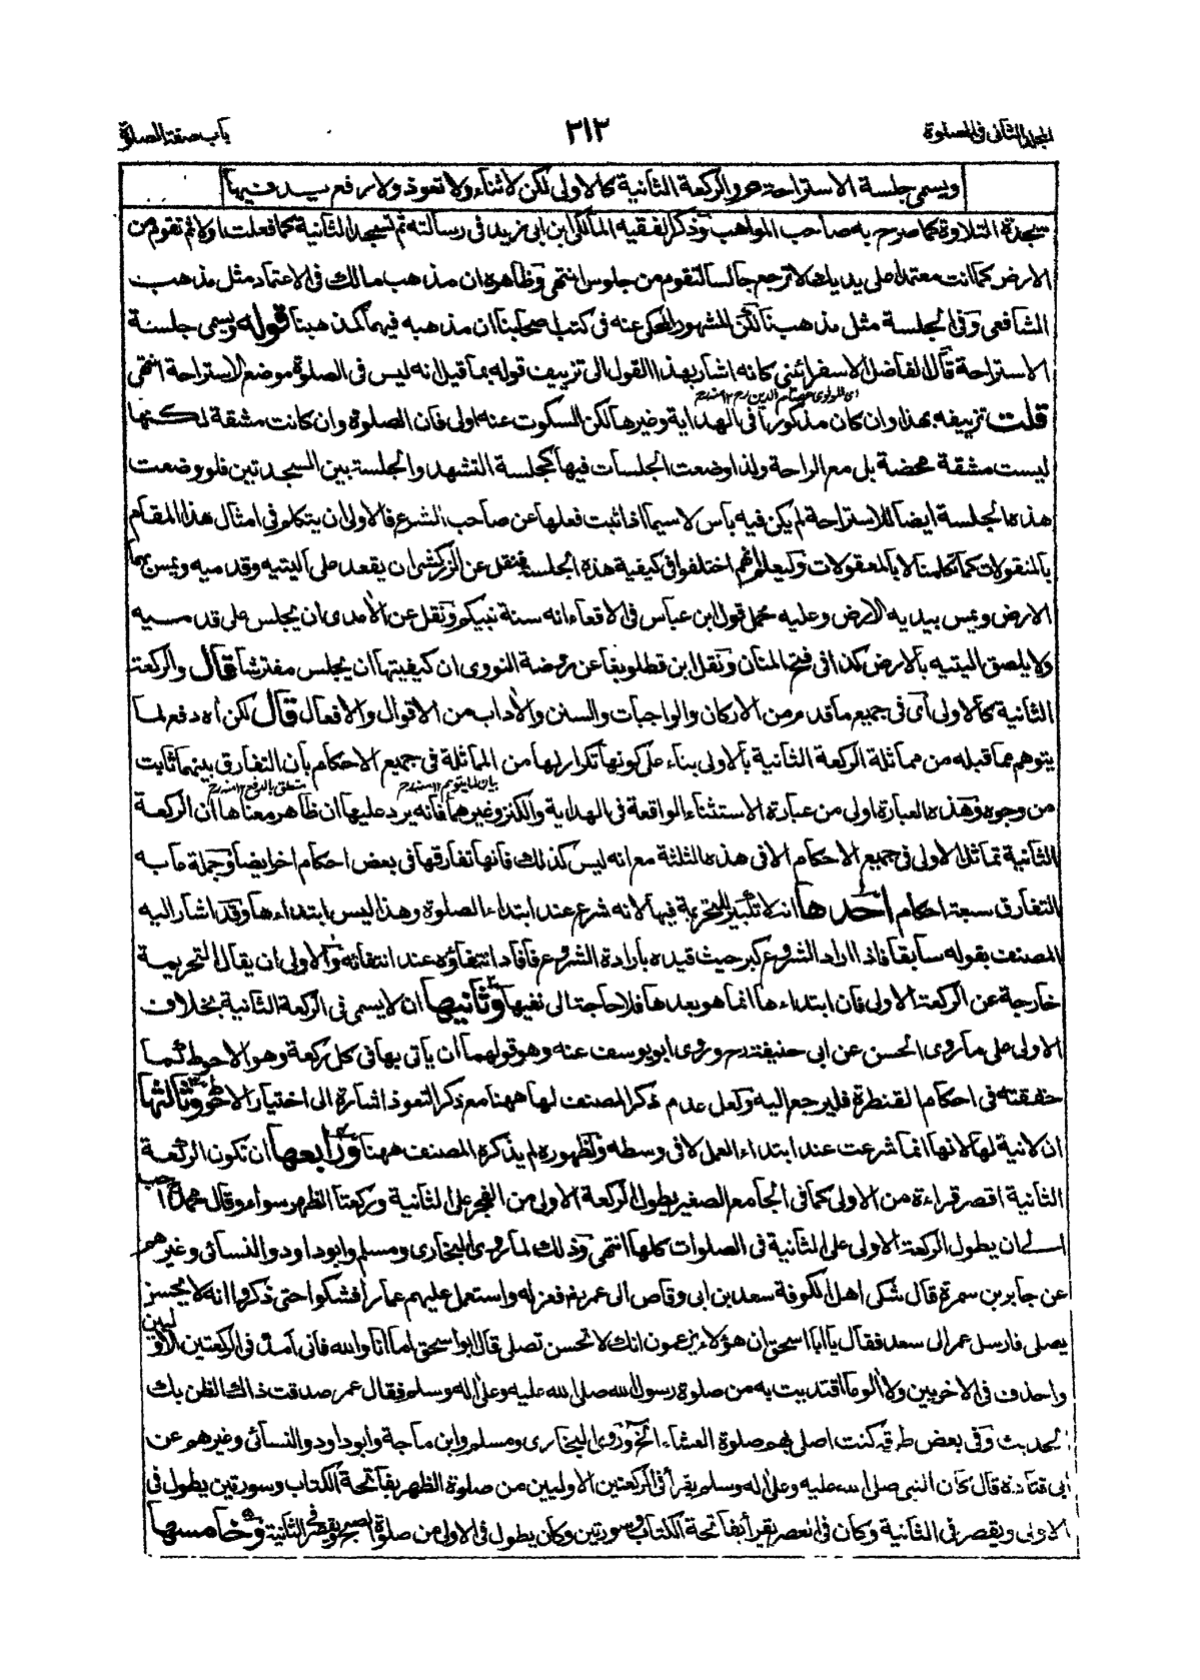 المجلد الثانى فى الصلوة
٢١٢
باب صفة الصلوة
ويسمى جلسة الاستراحة هو والركعة الثانية كالاولى لكن لا ثناء ولا تعوذ ولا رفع يد فيها
سجدة التلاوة كما صرح به صاحب المواهب وذكر الفقيه المالكى ابن ابى زيد فى رسالته ثم تسجد الثانية كما فعلت اولا ثم تقوم من
الارض كما انت معتمدا على يديك لا ترجع جالسا لتقوم من جلوس انتهى وظاهره ان مذهب مالك فى الاعتماد مثل مذهب
الشافعى وفى الجلسة مثل مذهبنا لكن المشهور المحكى عنه فى كتب اصحابنا ان مذهبه فيهما كمذهبنا قوله ويسمى جلسة
الاستراحة قال الفاضل الاسفرائنى كانه اشار بهذا القول الى تزييف قوله بما قيل انه ليس فى الصلوة موضع الاستراحة انتهى
اى المولوى عصام الدين رح ١٢ منه رح
قلت تزييفه بهذا وان كان مذكورا فى الهداية وغيرها لكن السكوت عنه اولى فان الصلوة وان كانت مشقة لكنها
ليست مشقة محضة بل مع الراحة ولذا وضعت الجلسات فيها كجلسة التشهد والجلسة بين السجدتين فلو وضعت
هذه الجلسة ايضا للاستراحة لم يكن فيه بأس لا سيما اذا ثبت فعلها عن صاحب الشرع فالاولى ان يتكلم فى امثال هذا المقام
بالمنقولات كما تكلمنا لا بالمعقولات وليعلم انهم اختلفوا فى كيفية هذه الجلسة فنقل عن الزركشى ان يقعد على اليتيه وقدميه ويمس بهما
الارض ويمس بيديه الارض وعليه محمل قول ابن عباس فى الاقعاء انه سنة نبيكم ونقل عن الآمدى ان يجلس على قدميه
ولا يلصق اليتيه بالارض كذا فى فتح المنان ونقل ابن قطلوبغا عن روضة النووى ان كيفيتها ان يجلس مفترشا قال والركعة
الثانية كالاولى اى فى جميع ما قدم من الاركان والواجبات والسنن والآداب من الاقوال والافعال قال لكن اه دفع لما
يتوهم مما قبله من مماثلة الركعة الثانية بالاولى بناء على كونها تكرارا لها من المماثلة فى جميع الاحكام بان التفارق بينهما ثابت
بيان لما يتوهم ١٢ منه رح
متعلق بالدفع ١٢ منه رح
من وجوه وهذه العبارة اولى من عبارة الاستثناء الواقعة فى الهداية والكنز وغيرهما فانه يرد عليها ان ظاهر معناها ان الركعة
الثانية تماثل الاولى فى جميع الاحكام الا فى هذه الثلثة مع انه ليس كذلك فانها تفارقها فى بعض احكام اخر ايضا وجملة ما به
التفارق سبعة احكام احدها انه لا تكبير للتحريمة فيها لانه شرع عند ابتداء الصلوة وهذا ليس بابتداءها وقد اشار اليه
المصنف بقوله سابقا فاذا اراد الشروع كبر حيث قيده بارادة الشروع فافاد انتفاؤه عند انتفائه والاولى ان يقال التحريمة
خارجة عن الركعة الاولى فان ابتداءها انما هو بعدها فلا حاجة الى نفيها وثانيها ان لا يسمى فى الركعة الثانية بخلاف
الاولى على ما روى الحسن عن ابى حنيفة رح وروى ابو يوسف عنه وهو قولهما ان يأتى بها فى كل ركعة وهو الاحوط كما
حققته فى احكام القنطرة فليرجع اليه ولعل عدم ذكر المصنف لها ههنا مع ذكر التعوذ اشارة الى اختيار الاحوط وثالثها
ان لا نية لها لانها انما شرعت عند ابتداء العمل لا فى وسطه ولظهوره لم يذكره المصنف ههنا ورابعها ان تكون الركعة
الثانية اقصر قراءة من الاولى كما فى الجامع الصغير يطول الركعة الاولى من الفجر على الثانية وركعتا الظهر سواء وقال محمد احب
الى ان يطول الركعة الاولى على الثانية فى الصلوات كلها انتهى وذلك لما روى البخارى ومسلم وابو داود والنسائى وغيرهم
عن جابر بن سمرة قال شكى اهل الكوفة سعد بن ابى وقاص الى عمر رض فعزله واستعمل عليهم عمارا فشكوا حتى ذكروا انه لا يحسن
يصلى فارسل عمر الى سعد فقال يا ابا اسحق ان هؤلاء يزعمون انك لا تحسن تصلى قال ابو اسحق اما انا والله فانى امد فى الركعتين الاوليين
واحذف فى الاخريين ولا آلو ما اقتديت به من صلوة رسول الله صلى الله عليه وعلى اله وسلم فقال عمر صدقت ذاك الظن بك
الحديث وفى بعض طرقه كنت اصلى بهم صلوة العشاء الخ وروى البخارى ومسلم وابن ماجة وابو داود والنسائى وغيرهم عن
ابى قتادة قال كان النبى صلى الله عليه وعلى اله وسلم يقرأ فى الركعتين الاوليين من صلوة الظهر بفاتحة الكتاب وسورتين يطول فى
الاولى ويقصر فى الثانية وكان فى العصر يقرأ بفاتحة الكتاب وسورتين وكان يطول فى الاولى من صلوة الصبح ويقصر فى الثانية وخامسها